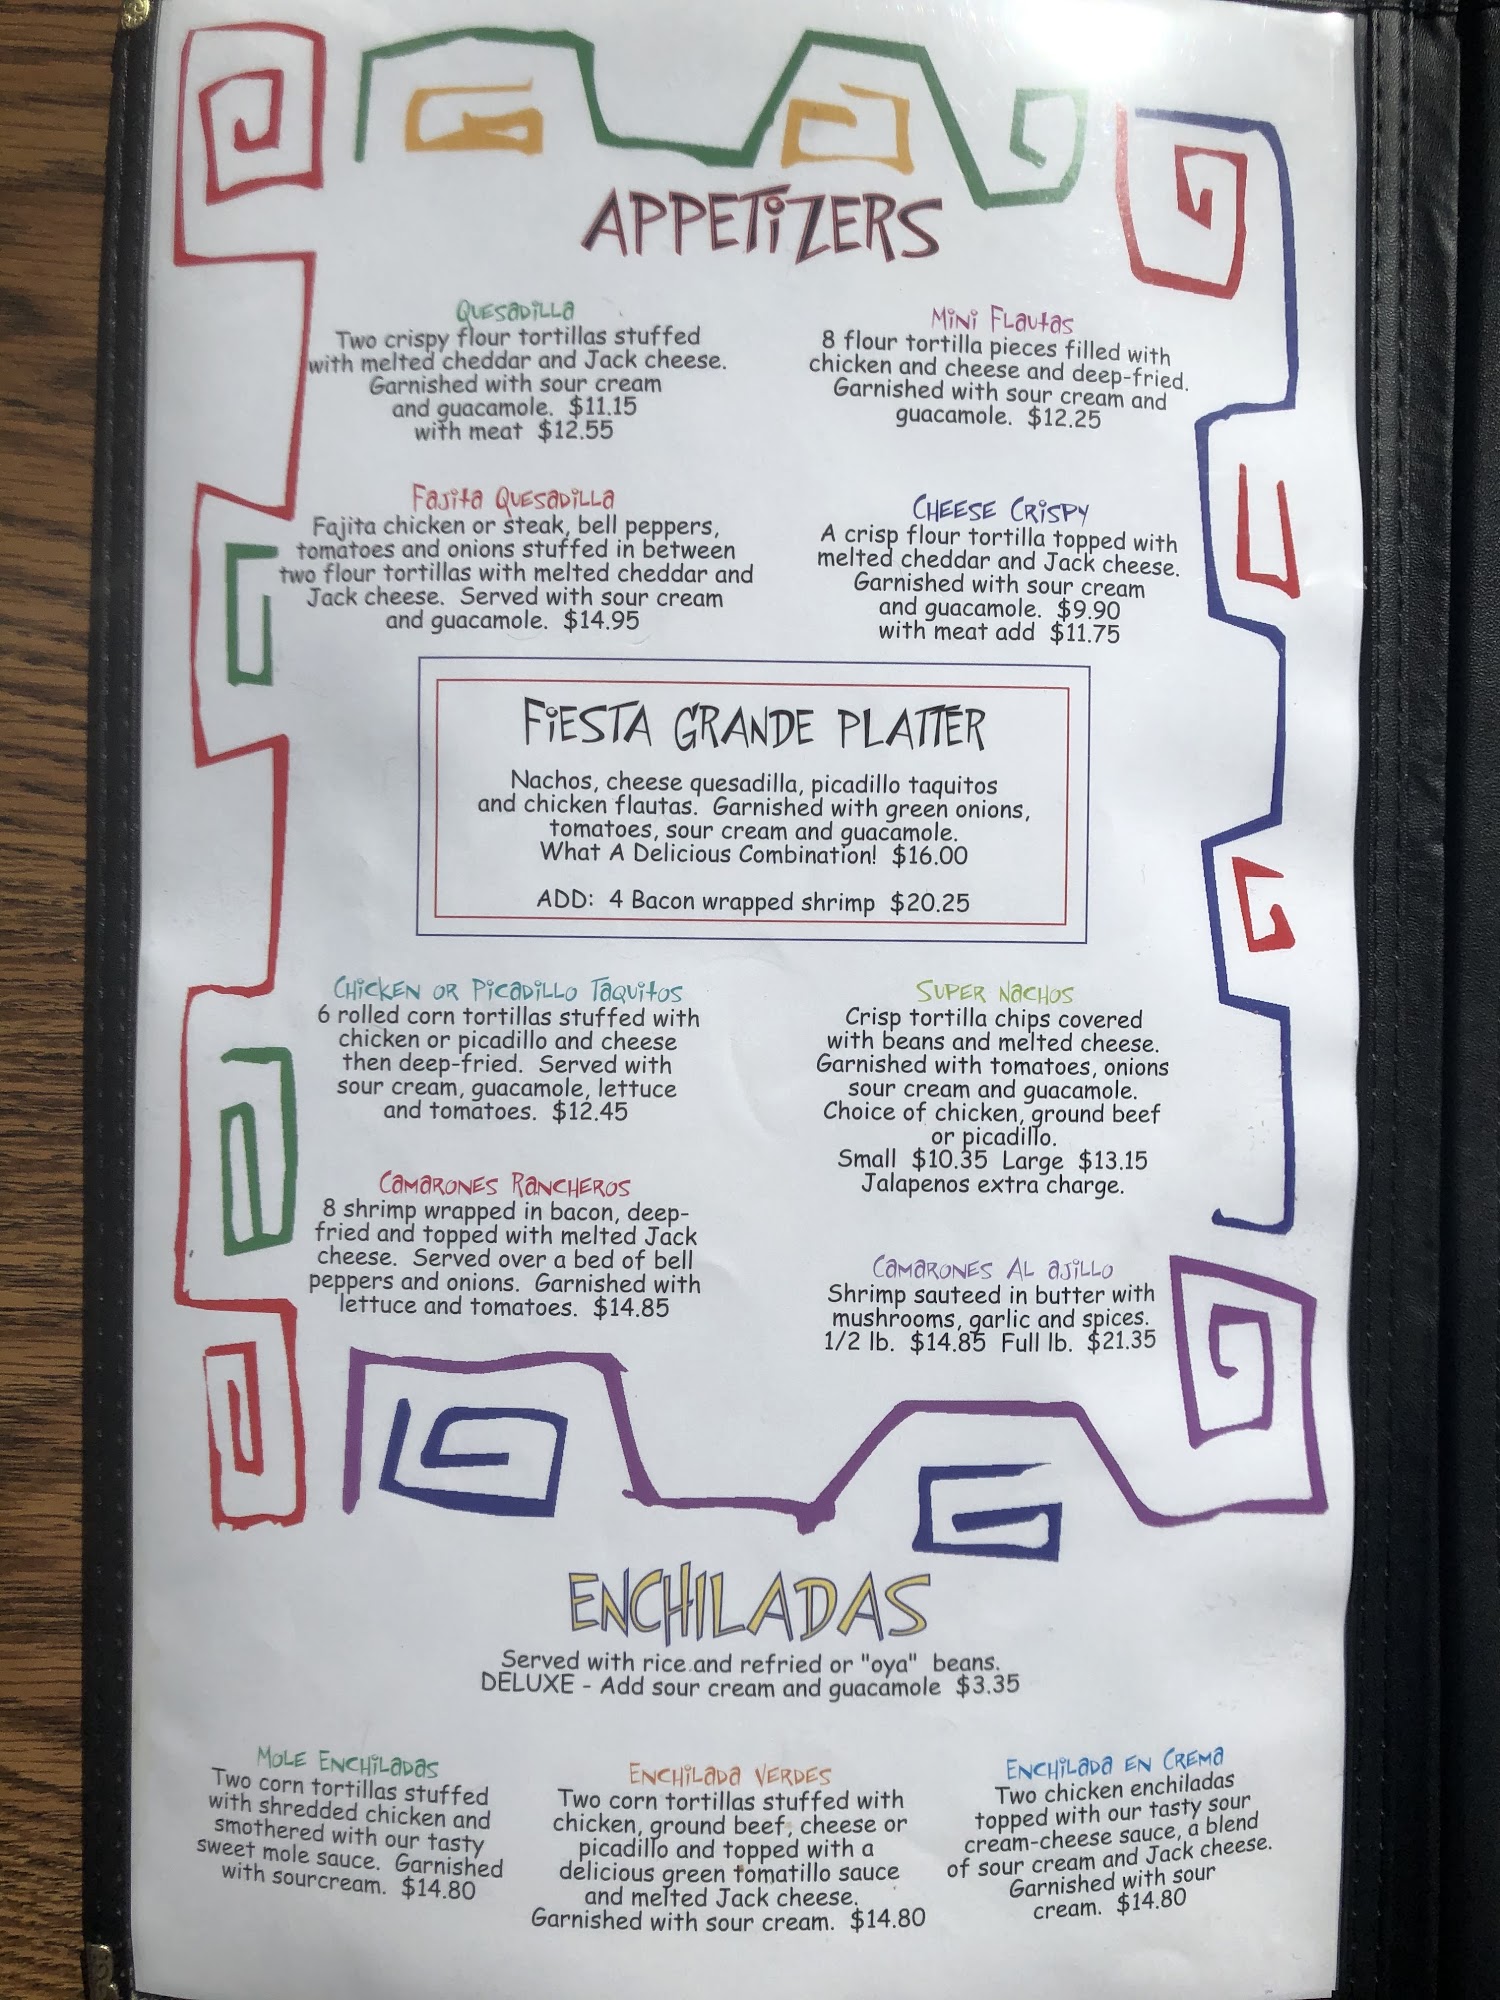 APPETIZERS
QUESADILLA
Two crispy flour tortillas stuffed
with melted cheddar and Jack cheese.
Garnished with sour cream
and guacamole. $11.15
with meat $12.55
MINI FLAUTAS
8 flour tortilla pieces filled with
chicken and cheese and deep-fried.
Garnished with sour cream and
guacamole. $12.25
FAJITA QUESADILLA
Fajita chicken or steak, bell peppers,
tomatoes and onions stuffed in between
two flour tortillas with melted cheddar and
Jack cheese. Served with sour cream
and guacamole. $14.95
CHEESE CRISPY
A crisp flour tortilla topped with
melted cheddar and Jack cheese.
Garnished with sour cream
and guacamole. $9.90
with meat add $11.75
FIESTA GRANDE PLATTER
Nachos, cheese quesadilla, picadillo taquitos
and chicken flautas. Garnished with green onions,
tomatoes, sour cream and guacamole.
What A Delicious Combination! $16.00
ADD: 4 Bacon wrapped shrimp $20.25
CHICKEN OR PICADILLO TAQUITOS
6 rolled corn tortillas stuffed with
chicken or picadillo and cheese
then deep-fried. Served with
sour cream, guacamole, lettuce
and tomatoes. $12.45
SUPER NACHOS
Crisp tortilla chips covered
with beans and melted cheese.
Garnished with tomatoes, onions
sour cream and guacamole.
Choice of chicken, ground beef
or picadillo.
Small $10.35 Large $13.15
Jalapenos extra charge.
CAMARONES RANCHEROS
8 shrimp wrapped in bacon, deep-
fried and topped with melted Jack
cheese. Served over a bed of bell
peppers and onions. Garnished with
lettuce and tomatoes. $14.85
CAMARONES AL AJILLO
Shrimp sauteed in butter with
mushrooms, garlic and spices.
1/2 lb. $14.85 Full lb. $21.35
ENCHILADAS
Served with rice and refried or "oya" beans.
DELUXE - Add sour cream and guacamole $3.35
MOLE ENCHILADAS
Two corn tortillas stuffed
with shredded chicken and
smothered with our tasty
sweet mole sauce. Garnished
with sourcream. $14.80
ENCHILADA VERDES
Two corn tortillas stuffed with
chicken, ground beef, cheese or
picadillo and topped with a
delicious green tomatillo sauce
and melted Jack cheese.
Garnished with sour cream. $14.80
ENCHILADA EN CREMA
Two chicken enchiladas
topped with our tasty sour
cream-cheese sauce, a blend
of sour cream and Jack cheese.
Garnished with sour
cream. $14.80